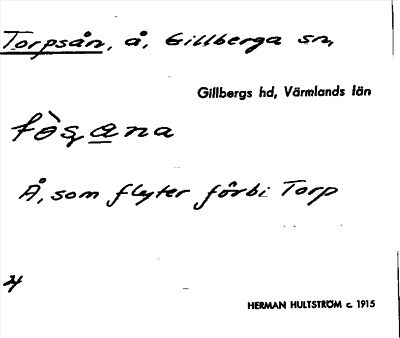 Torpsån, å, Gillberga sn,
Gillbergs hd, Värmlands län
Å, som flyter förbi Torp
HERMAN HULTSTRÖM c. 1915